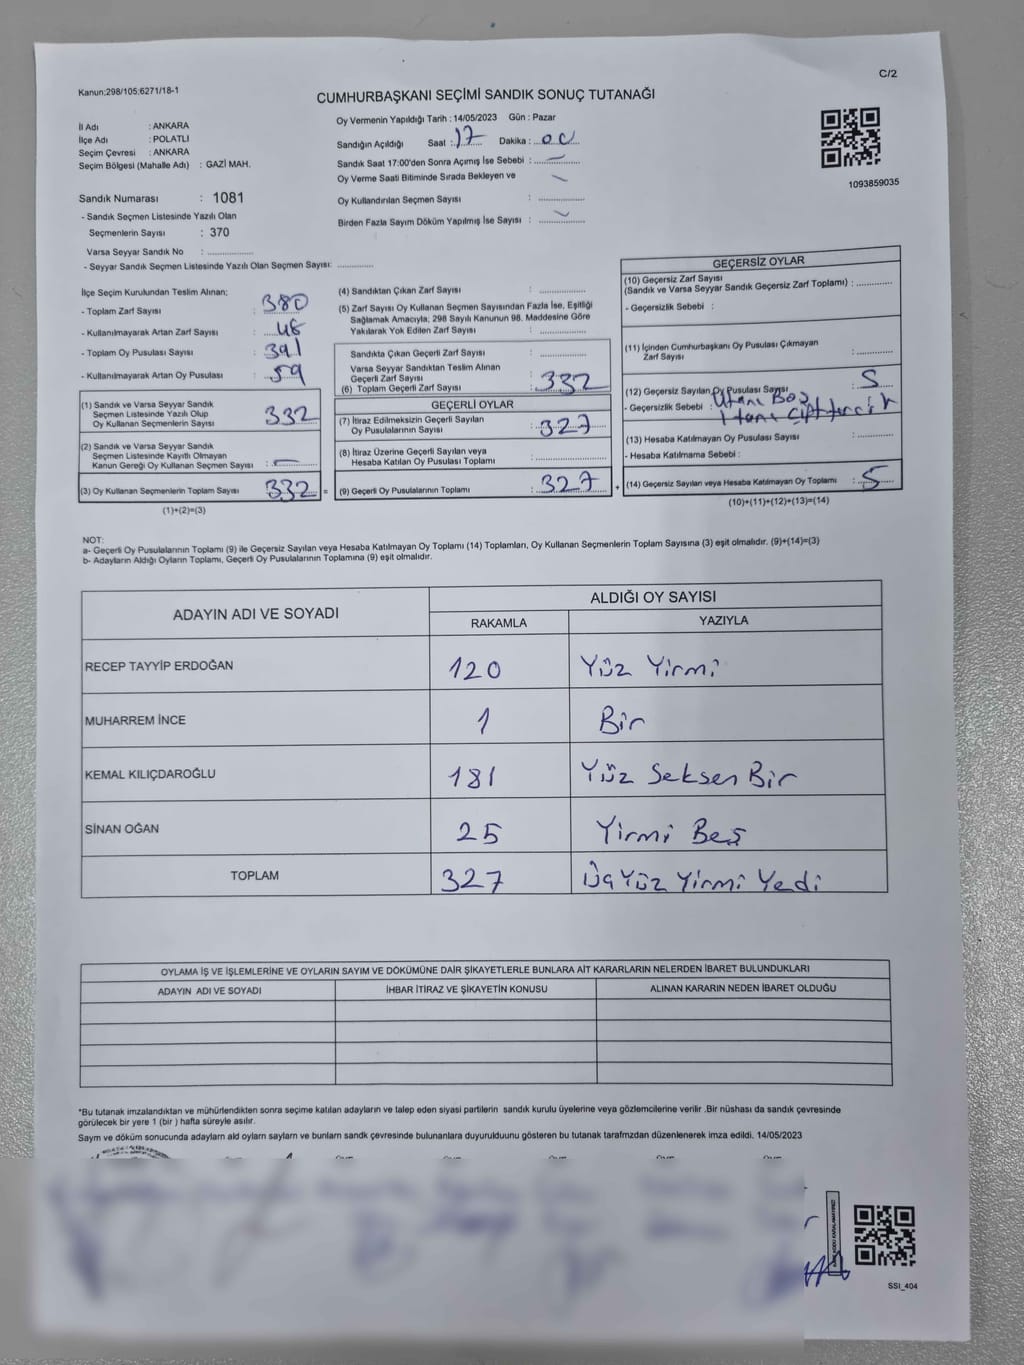 C/2
Kanun;298/105;6271/18-1
CUMHURBAŞKANI SEÇİMİ SANDIK SONUÇ TUTANAĞI
İl Adı : ANKARA
İlçe Adı : POLATLI
Seçim Çevresi : ANKARA
Seçim Bölgesi (Mahalle Adı) : GAZİ MAH.
Sandık Numarası : 1081
- Sandık Seçmen Listesinde Yazılı Olan
Seçmenlerin Sayısı : 370
Varsa Seyyar Sandık No : ..............
- Seyyar Sandık Seçmen Listesinde Yazılı Olan Seçmen Sayısı: ............
Oy Vermenin Yapıldığı Tarih : 14/05/2023 Gün : Pazar
Sandığın Açıldığı Saat : 17 Dakika : 00
Sandık Saat 17:00'den Sonra Açımış İse Sebebi : –
Oy Verme Saati Bitiminde Sırada Bekleyen ve
Oy Kullandırılan Seçmen Sayısı :
Birden Fazla Sayım Döküm Yapılmış İse Sayısı :
1093859035
İlçe Seçim Kurulundan Teslim Alınan;
- Toplam Zarf Sayısı : 380
- Kullanılmayarak Artan Zarf Sayısı : 48
- Toplam Oy Pusulası Sayısı : 391
- Kullanılmayarak Artan Oy Pusulası : 59
(1) Sandık ve Varsa Seyyar Sandık
Seçmen Listesinde Yazılı Olup
Oy Kullanan Seçmenlerin Sayısı : 332
(2) Sandık ve Varsa Seyyar Sandık
Seçmen Listesinde Kayıtlı Olmayan
Kanun Gereği Oy Kullanan Seçmen Sayısı : –
(3) Oy Kullanan Seçmenlerin Toplam Sayısı : 332 =
(1)+(2)=(3)
(4) Sandıktan Çıkan Zarf Sayısı :
(5) Zarf Sayısı Oy Kullanan Seçmen Sayısından Fazla İse, Eşitliği
Sağlamak Amacıyla; 298 Sayılı Kanunun 98. Maddesine Göre
Yakılarak Yok Edilen Zarf Sayısı :
Sandıkta Çıkan Geçerli Zarf Sayısı :
Varsa Seyyar Sandıktan Teslim Alınan
Geçerli Zarf Sayısı
(6) Toplam Geçerli Zarf Sayısı : 332
GEÇERLİ OYLAR
(7) İtiraz Edilmeksizin Geçerli Sayılan
Oy Pusulalarının Sayısı : 327
(8) İtiraz Üzerine Geçerli Sayılan veya
Hesaba Katılan Oy Pusulası Toplamı :
(9) Geçerli Oy Pusulalarının Toplamı : 327 +
GEÇERSİZ OYLAR
(10) Geçersiz Zarf Sayısı
(Sandık ve Varsa Seyyar Sandık Geçersiz Zarf Toplamı) :
- Geçersizlik Sebebi :
(11) İçinden Cumhurbaşkanı Oy Pusulası Çıkmayan
Zarf Sayısı :
(12) Geçersiz Sayılan Oy Pusulası Sayısı : 5
- Geçersizlik Sebebi : 4 tane Boş
1 tane Çift tercih
(13) Hesaba Katılmayan Oy Pusulası Sayısı :
- Hesaba Katılmama Sebebi :
(14) Geçersiz Sayılan veya Hesaba Katılmayan Oy Toplamı : 5
(10)+(11)+(12)+(13)=(14)
NOT:
a- Geçerli Oy Pusulalarının Toplamı (9) ile Geçersiz Sayılan veya Hesaba Katılmayan Oy Toplamı (14) Toplamları, Oy Kullanan Seçmenlerin Toplam Sayısına (3) eşit olmalıdır. (9)+(14)=(3)
b- Adayların Aldığı Oyların Toplamı, Geçerli Oy Pusulalarının Toplamına (9) eşit olmalıdır.
ADAYIN ADI VE SOYADI ALDIĞI OY SAYISI
RAKAMLA YAZIYLA
RECEP TAYYİP ERDOĞAN 120 Yüz Yirmi
MUHARREM İNCE 1 Bir
KEMAL KILIÇDAROĞLU 181 Yüz Seksen Bir
SİNAN OĞAN 25 Yirmi Beş
TOPLAM 327 Üç Yüz Yirmi Yedi
OYLAMA İŞ VE İŞLEMLERİNE VE OYLARIN SAYIM VE DÖKÜMÜNE DAİR ŞİKAYETLERLE BUNLARA AİT KARARLARIN NELERDEN İBARET BULUNDUKLARI
ADAYIN ADI VE SOYADI İHBAR İTİRAZ VE ŞİKAYETİN KONUSU ALINAN KARARIN NEDEN İBARET OLDUĞU
*Bu tutanak imzalandıktan ve mühürlendikten sonra seçime katılan adayların ve talep eden siyasi partilerin sandık kurulu üyelerine veya gözlemcilerine verilir .Bir nüshası da sandık çevresinde
görülecek bir yere 1 (bir ) hafta süreyle asılır.
Saym ve döküm sonucunda adayların ald oyların saylarn ve bunlarn sandk çevresinde bulunanlara duyurulduunu gösteren bu tutanak tarafmzdan düzenlenerek imza edildi. 14/05/2023
SSI_404